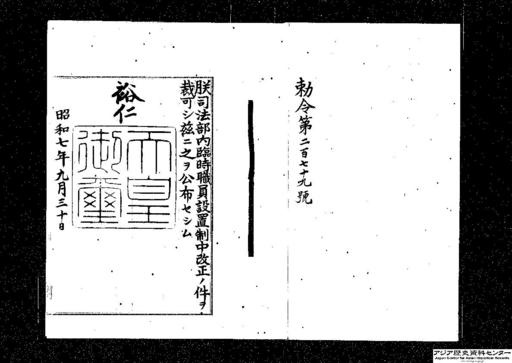 勅令第二百七十九號
朕司法部內臨時職員設置制中改正ノ件ヲ
裁可シ茲ニ之ヲ公布セシム
裕仁
天皇御璽
昭和七年九月三十日
アジア歴史資料センター
Japan Center for Asian Historical Records